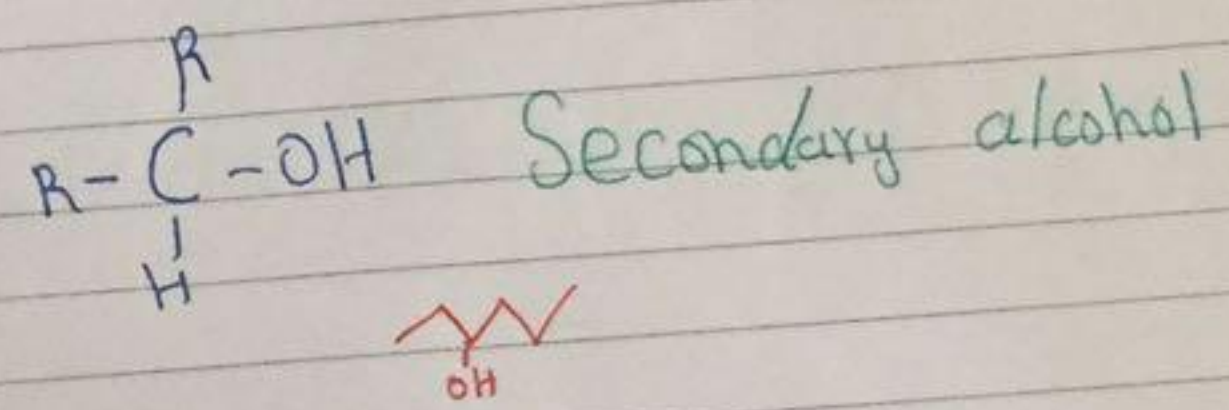 R
R-C-OH Secondary alcohol
H
OH